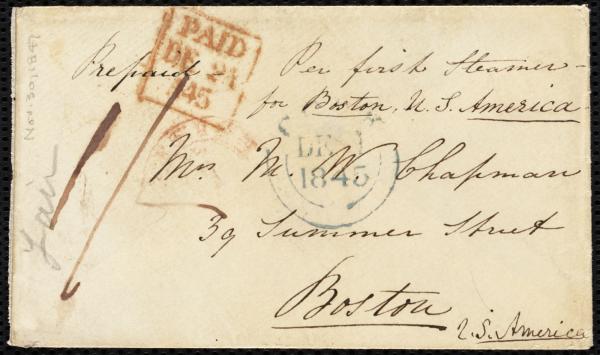 PAID
DE 24
1845
Prepaid - Per first Steamer -
for Boston, U.S. America
DE
1845
Mrs M. W. Chapman
39 Summer Street
Boston
U.S. America